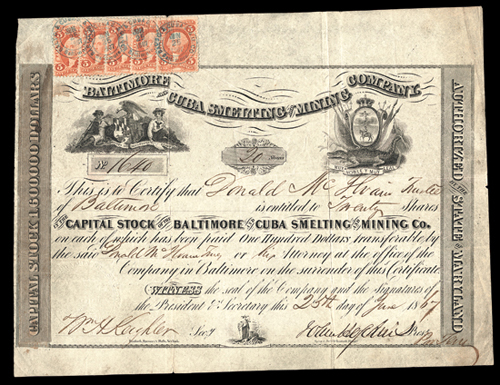 5 5 5 5 5
BALTIMORE AND CUBA SMELTING AND MINING COMPANY.
CAPITAL STOCK 1.600.000 DOLLARS
AUTHORIZED BY THE STATE OF MARYLAND
No 1640
20 Shares
This is to Certify that Donald Mc Trustee
of Baltimore is entitled to Twenty Shares
OF THE CAPITAL STOCK OF THE BALTIMORE AND CUBA SMELTING AND MINING Co.
on each of which has been paid One Hundred Dollars transferable by
the said or his Attorney at the office of the
Company in Baltimore on the surrender of this Certificate.
WITNESS the seal of the Company and the Signatures of
the President & Secretary this 25th day of June 1867
Wm H Secy Prest